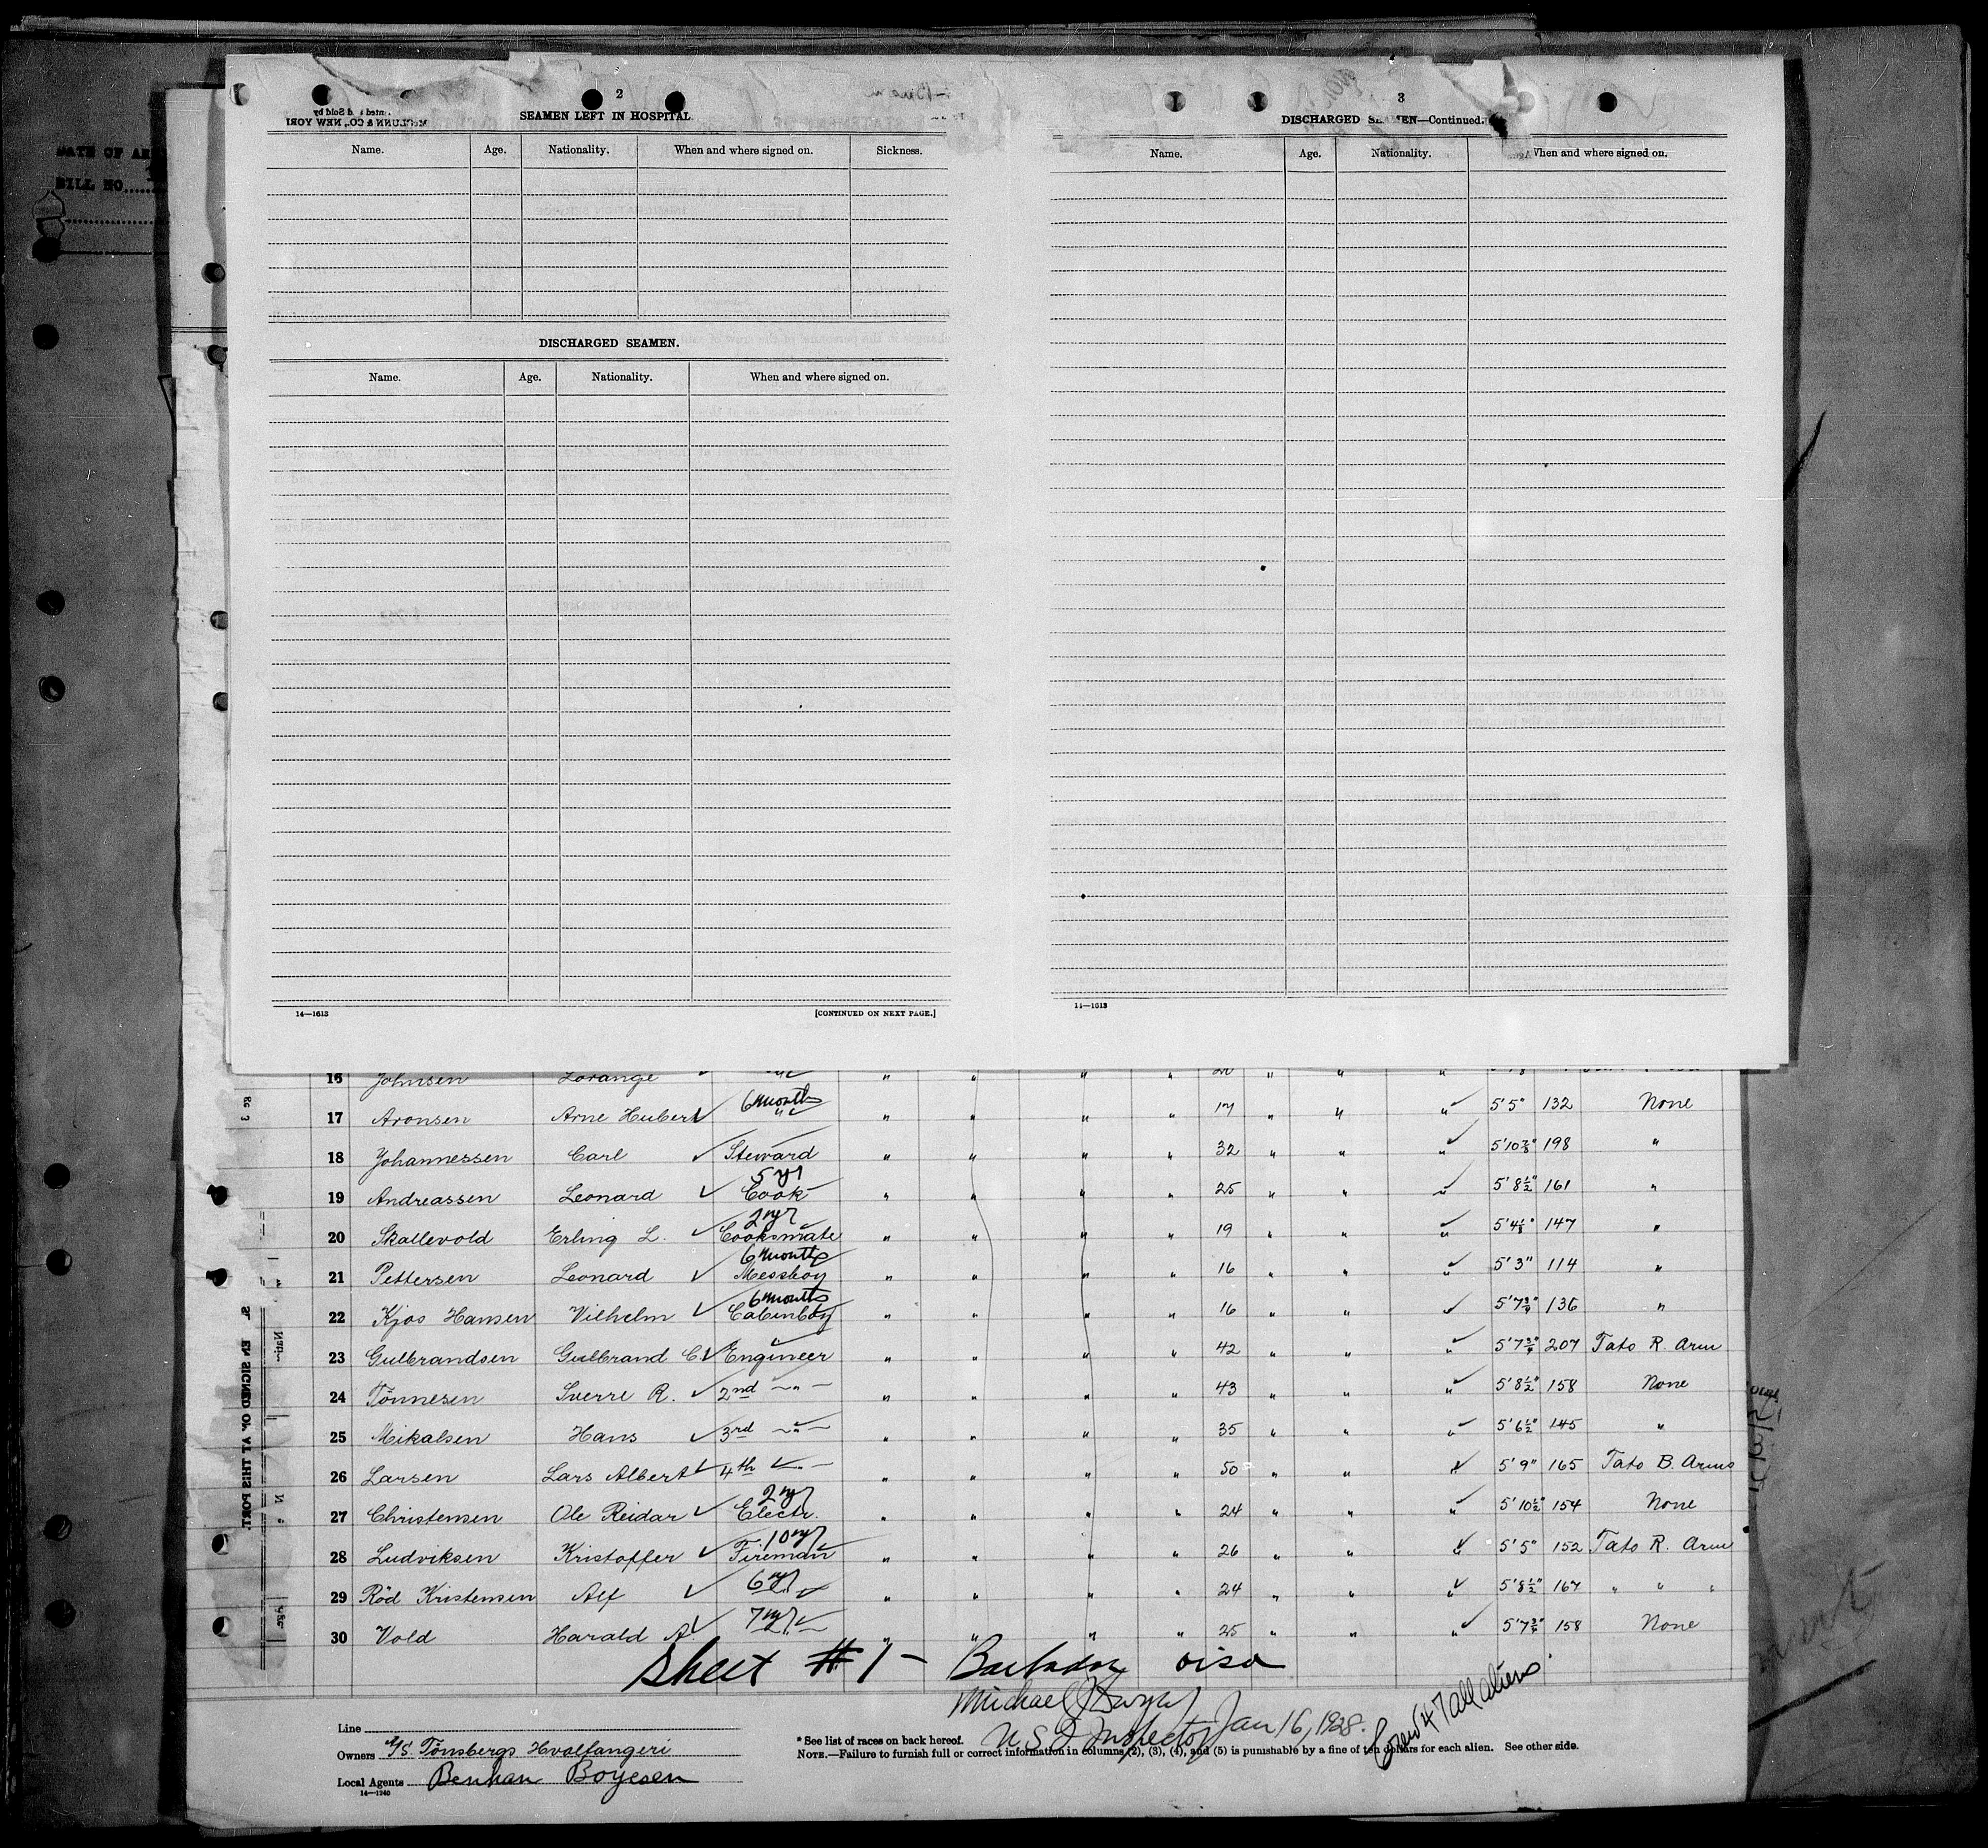 DATE OF
BILL NO.
2
SEAMEN LEFT IN HOSPITAL
Name. Age. Nationality. When and where signed on. Sickness.
DISCHARGED SEAMEN.
Name. Age. Nationality. When and where signed on.
14—1613 [CONTINUED ON NEXT PAGE.]
3
DISCHARGED SEAMEN—Continued.
Name. Age. Nationality. When and where signed on.
14—1613
16 Johnsen Lorange
17 Aronsen Arne Hubert 6 months " " " " " 17 " " " 5'5" 132 None
18 Johannessen Carl Steward " " " " 32 " " " 5'10⅞" 198 "
19 Andreassen Leonard 5 yr Cook " " " " 25 " " " 5'8½" 161 "
20 Skallevold Erling L. 2 yr Cooksmate " " " " 19 " " " 5'4⅛" 147 "
21 Pettersen Leonard 6 months Messboy " " " " 16 " " " 5'3" 114 "
22 Kjos Hansen Vilhelm 6 months Cabinboy " " " " 16 " " " 5'7¾" 136 "
23 Gulbrandsen Gulbrand C. Engineer " " " " 42 " " " 5'7¾" 207 Tato R. Arm
24 Tönnesen Sverre R. 2nd —"— " " " " 43 " " " 5'8½" 158 None
25 Mikalsen Hans 3rd —"— " " " " 35 " " " 5'6½" 145 "
26 Larsen Lars Albert 4th —"— " " " " 50 " " " 5'9" 165 Tato B. Arms
27 Christensen Ole Reidar 2 yr Electr. " " " " 24 " " " 5'10½" 154 None
28 Ludviksen Kristoffer 10 yr Fireman " " " " 26 " " " 5'5" 152 Tato R. Arm
29 Röd Kristensen Alf 6 yr " " " " " 24 " " " 5'8½" 167 " " "
30 Vold Harald A. 7 yr " " " " " 25 " " " 5'7¾" 158 None
Sheet #1 — Barbados visa
Michael
U S I Inspector Jan 16, 1928.
Crew 47 all aliens
Line
Owners A/S. Tönsbergs Hvalfangeri
Local Agents Benham Boyesen
14—1240
* See list of races on back hereof.
NOTE.—Failure to furnish full or correct information in columns (2), (3), (4), and (5) is punishable by a fine of ten dollars for each alien. See other side.